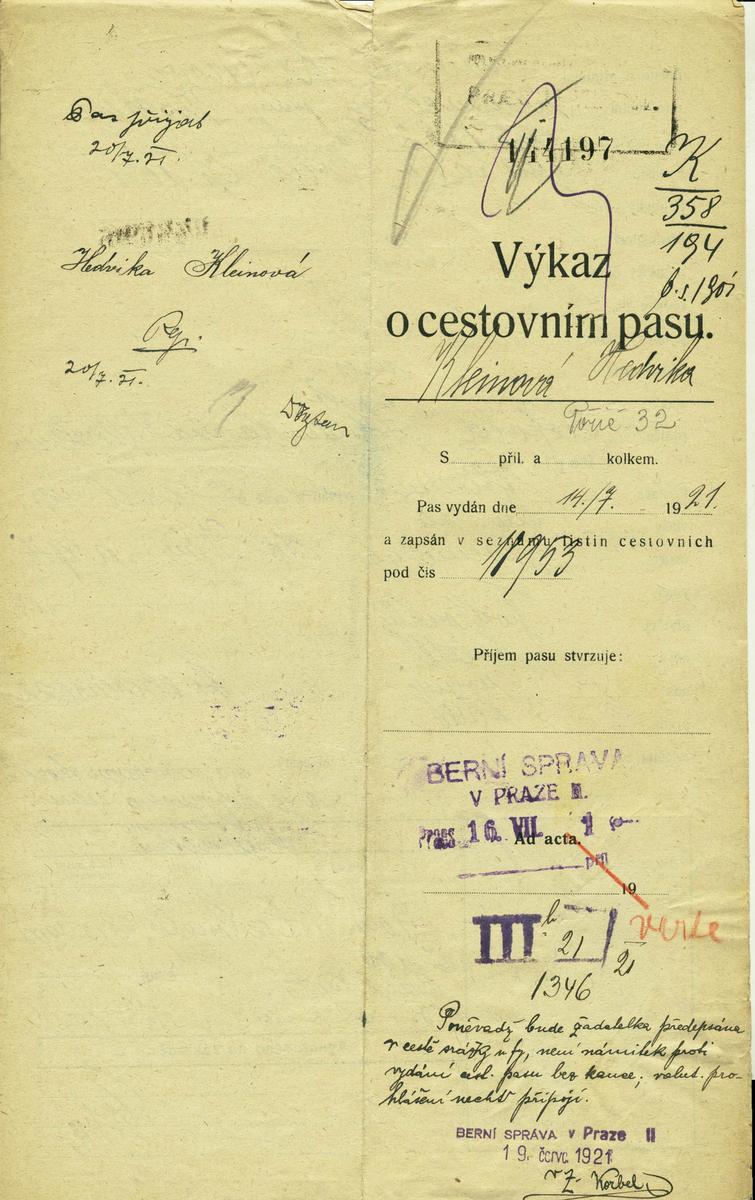 Pas přijal
20/7. 21.
Hedvika Kleinová
20/7. 21.
144197
K
358
194
Výkaz
o cestovním pasu.
Kleinová Hedvika
Poříč 32
S příl. a kolkem.
Pas vydán dne 14./7. 1921.
a zapsán v seznamu listin cestovních
pod čís 18953
Příjem pasu stvrzuje:
BERNÍ SPRÁVA
V PRAZE II.
16. VII.
Ad acta.
19
III b 21/21
1346
verte
Poněvadž bude žadatelka předepsána
v cestě srážky u fy, není námitek proti
vydání pasu bez kauce; valut. pro-
hlášení nechť připojí.
BERNÍ SPRÁVA v Praze II
19. červc 1921
v Z. Korbel